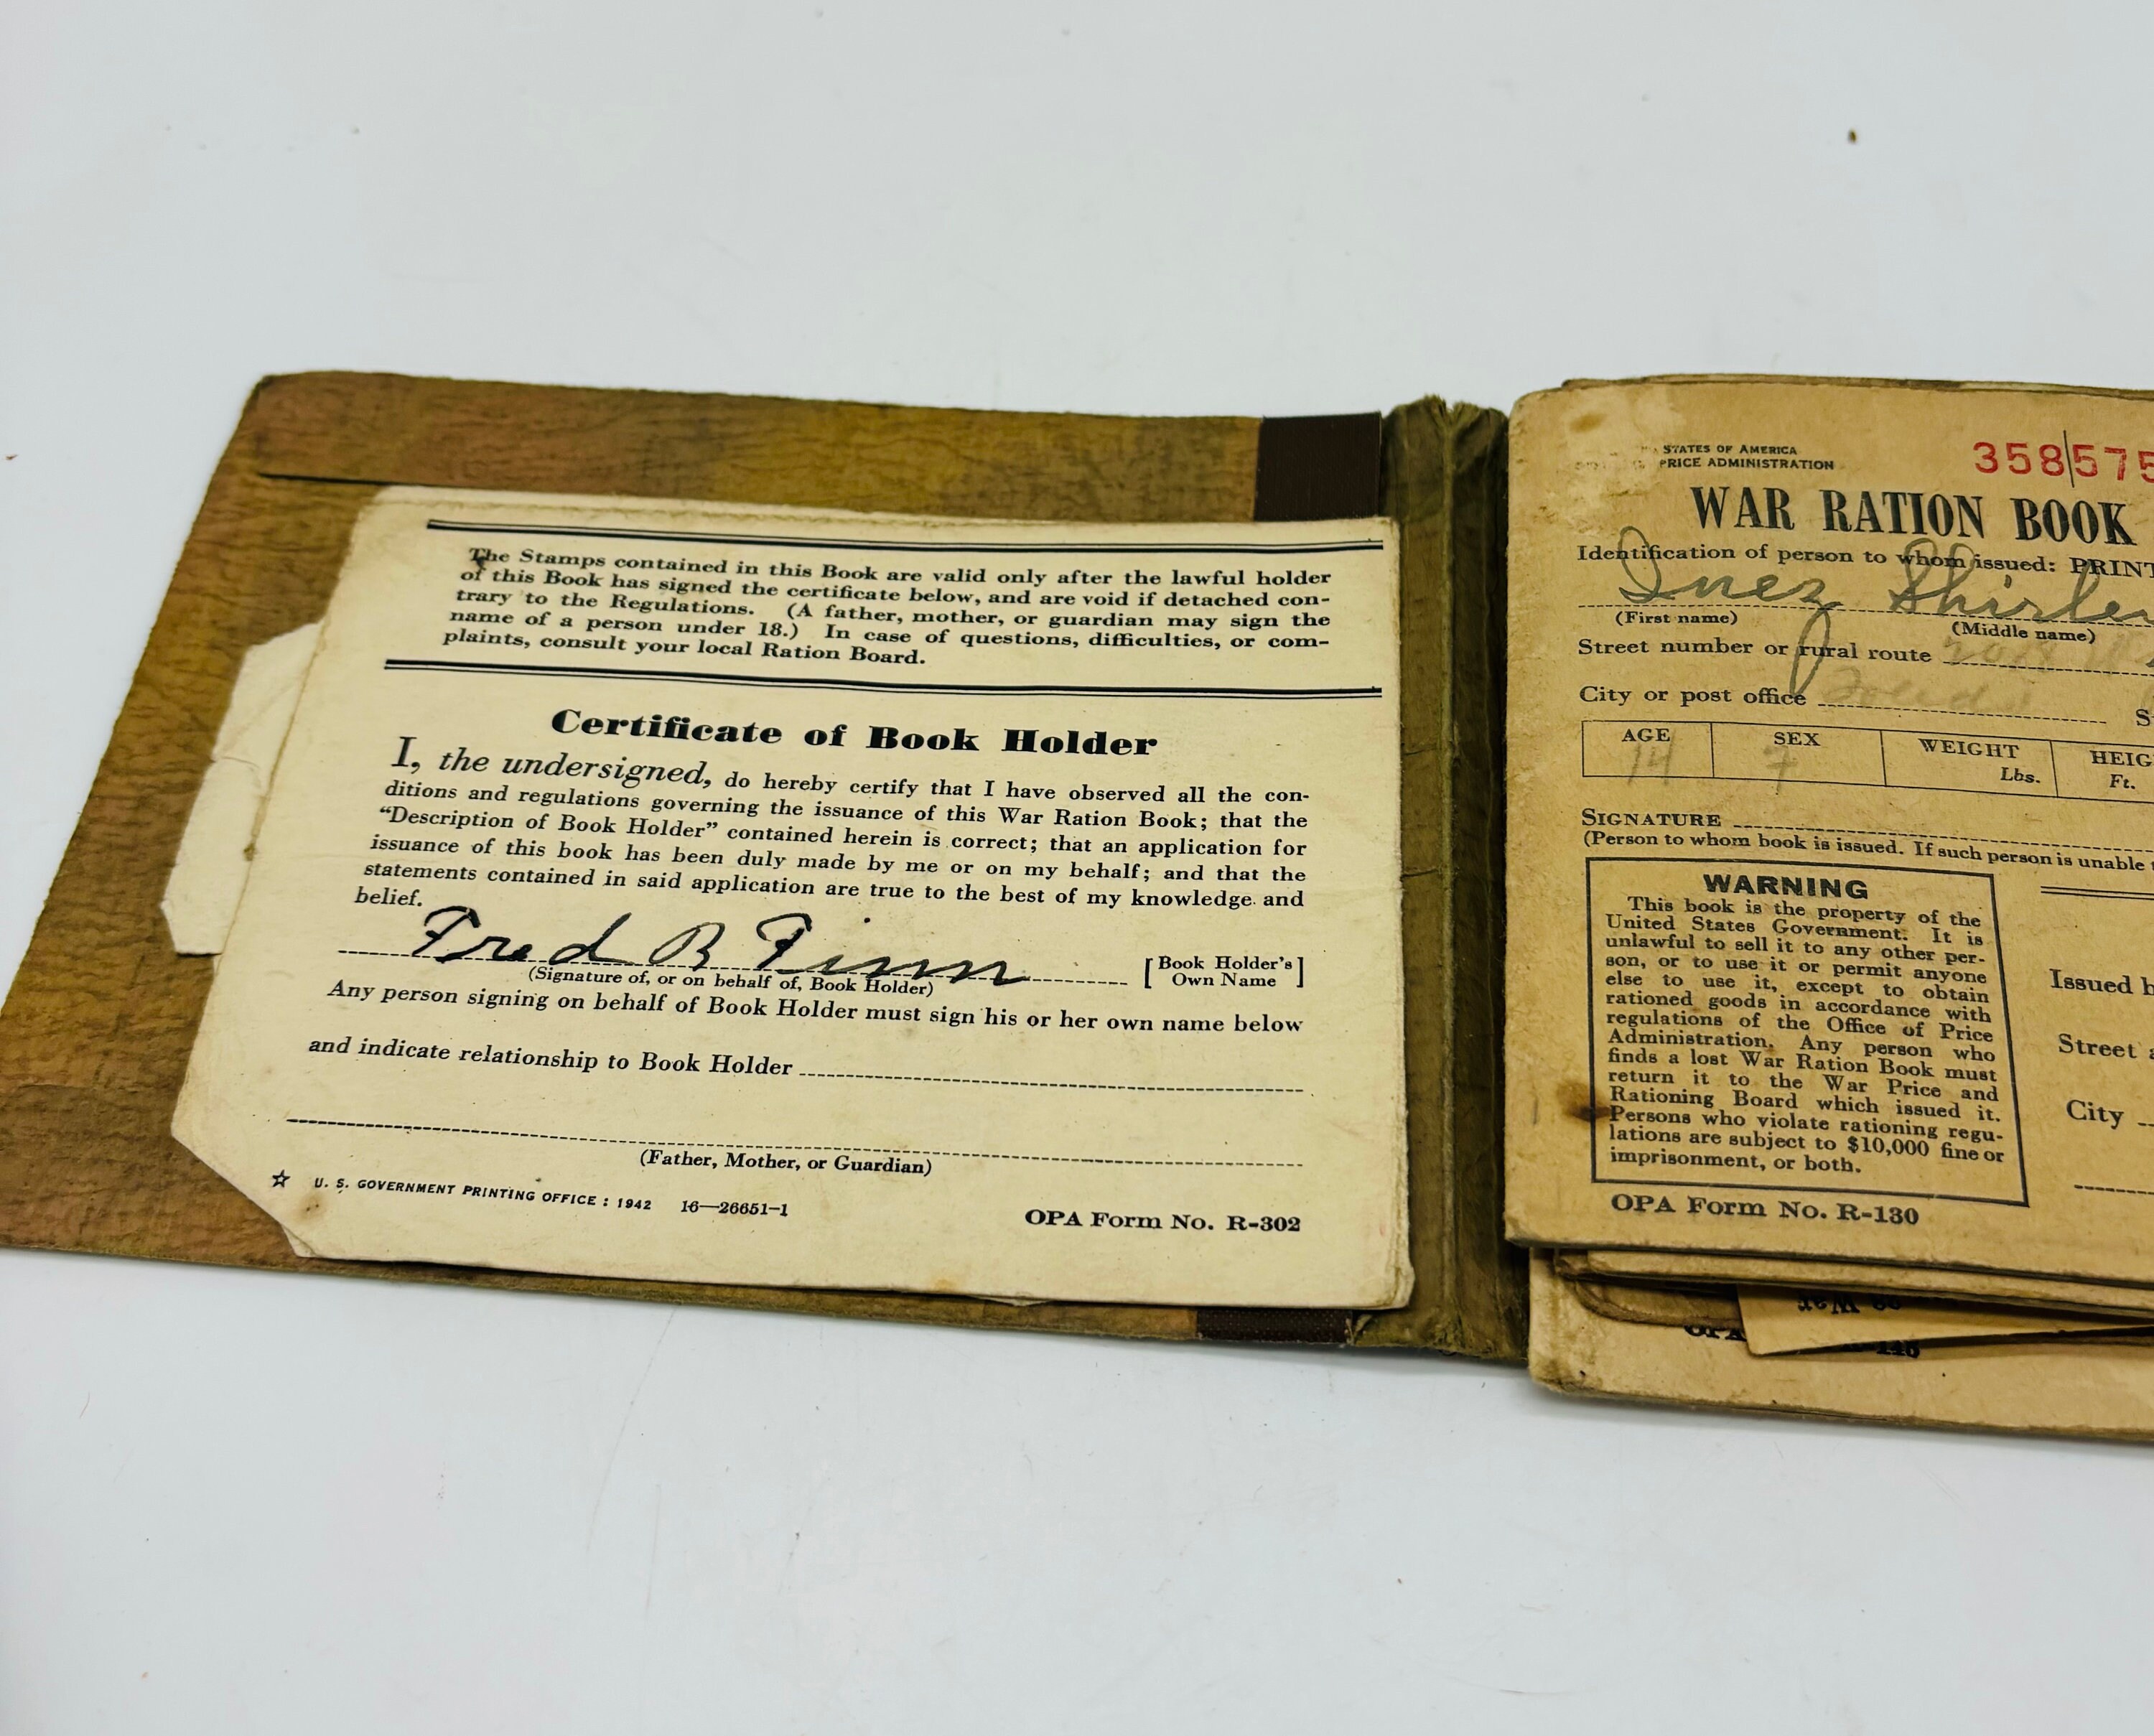 The Stamps contained in this Book are valid only after the lawful holder
of this Book has signed the certificate below, and are void if detached con-
trary to the Regulations. (A father, mother, or guardian may sign the
name of a person under 18.) In case of questions, difficulties, or com-
plaints, consult your local Ration Board.
Certificate of Book Holder
I, the undersigned, do hereby certify that I have observed all the con-
ditions and regulations governing the issuance of this War Ration Book; that the
“Description of Book Holder” contained herein is correct; that an application for
issuance of this book has been duly made by me or on my behalf; and that the
statements contained in said application are true to the best of my knowledge and
belief.
Fred B Finn
(Signature of, or on behalf of, Book Holder)
[Book Holder's
Own Name]
Any person signing on behalf of Book Holder must sign his or her own name below
and indicate relationship to Book Holder
(Father, Mother, or Guardian)
☆ U. S. GOVERNMENT PRINTING OFFICE : 1942 16—26651-1
OPA Form No. R-302
STATES OF AMERICA
PRICE ADMINISTRATION
358575
WAR RATION BOOK
Identification of person to whom issued: PRINT
Inez Shirley
(First name) (Middle name)
Street number or rural route
City or post office
AGE SEX WEIGHT HEIG
14 f Lbs. Ft.
SIGNATURE
(Person to whom book is issued. If such person is unable
WARNING
This book is the property of the
United States Government. It is
unlawful to sell it to any other per-
son, or to use it or permit anyone
else to use it, except to obtain
rationed goods in accordance with
regulations of the Office of Price
Administration. Any person who
finds a lost War Ration Book must
return it to the War Price and
Rationing Board which issued it.
Persons who violate rationing regu-
lations are subject to $10,000 fine or
imprisonment, or both.
Issued b
Street
City
OPA Form No. R-130